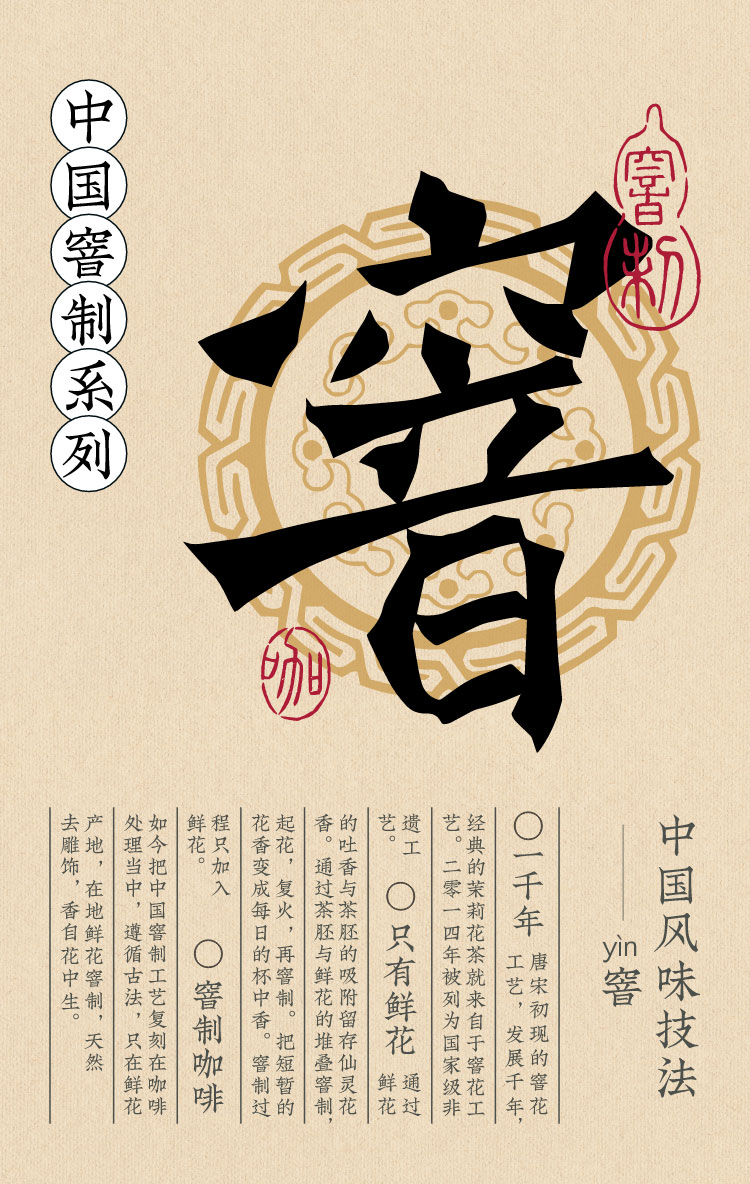 中国窨制系列
窨
窨制
咖
中国风味技法
yìn
窨
○一千年
唐宋初现的窨花
工艺，发展千年，
经典的茉莉花茶就来自于窨花工
艺。二零一四年被列为国家级非
遗工
艺。
○只有鲜花
通过
鲜花
的吐香与茶胚的吸附留存仙灵花
香。通过茶胚与鲜花的堆叠窨制，
起花，复火，再窨制。把短暂的
花香变成每日的杯中香。窨制过
程只加入
鲜花。
○窨制咖啡
如今把中国窨制工艺复刻在咖啡
处理当中，遵循古法，只在鲜花
产地，在地鲜花窨制，天然
去雕饰，香自花中生。